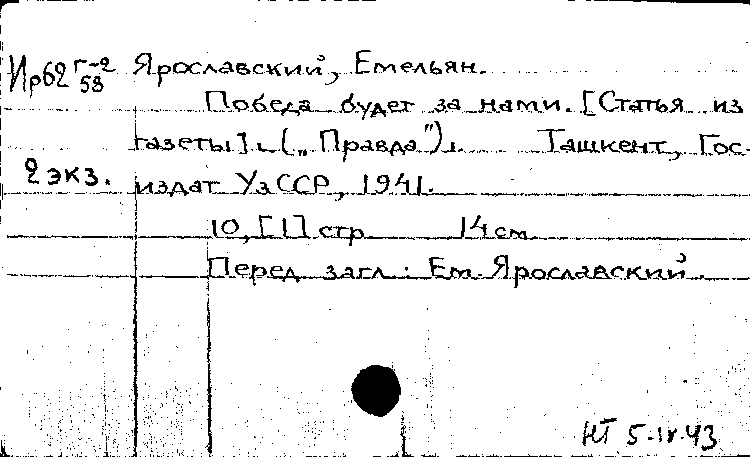 Ир62 г-2 Ярославский, Емельян.
58
Победа будет за нами. [Статья из
газеты]. („Правда"). Ташкент, Гос-
2 экз. издат УзССР, 1941.
10, [1] стр 14 см
Перед загл.: Ем. Ярославский.
НТ 5.IV.43